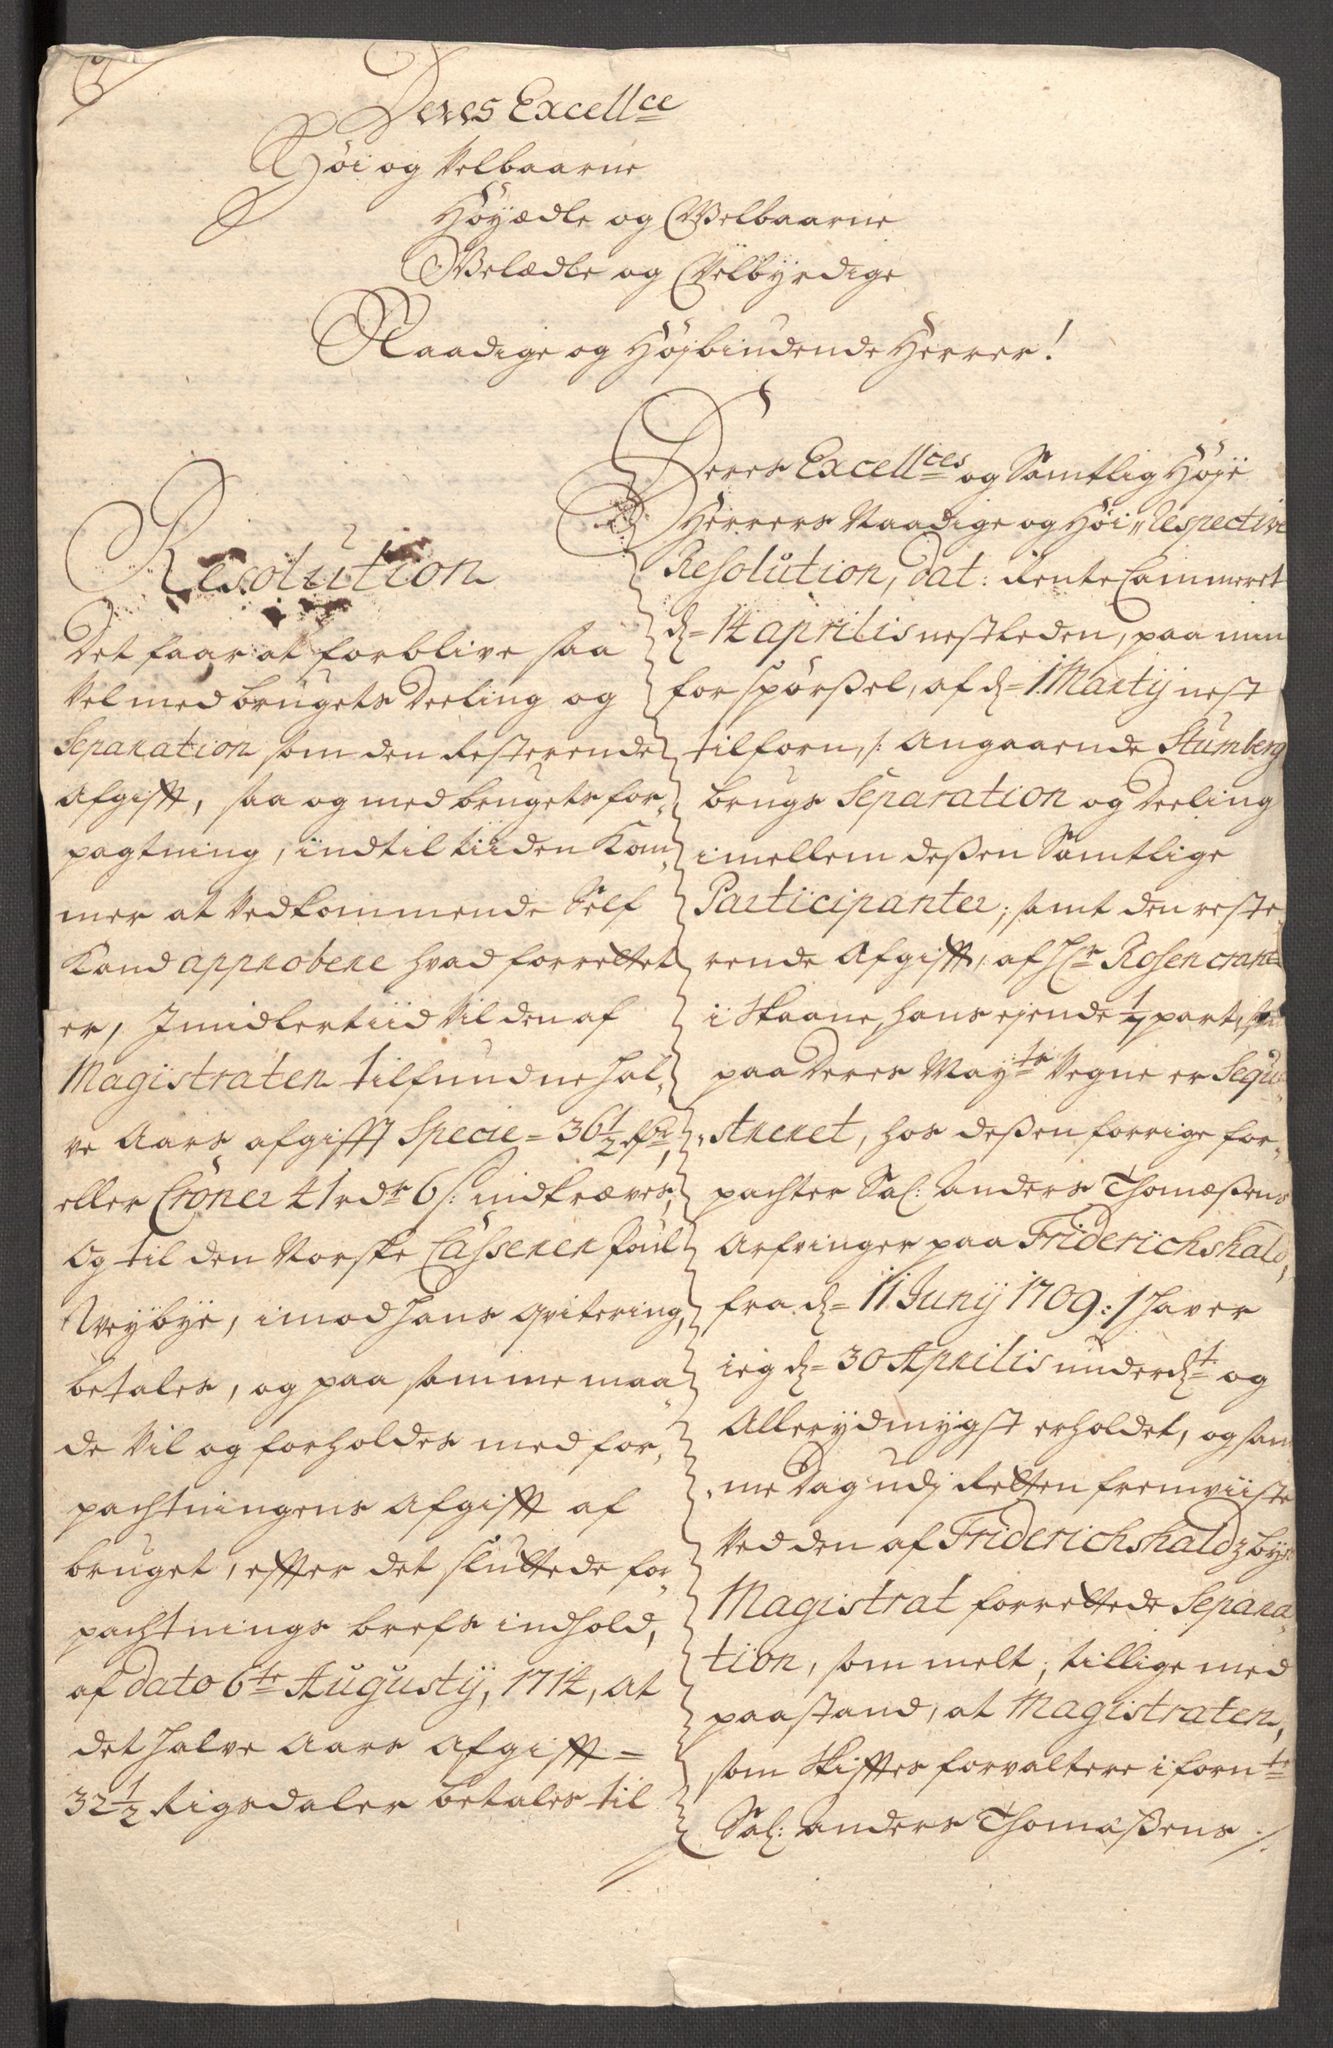 Deres Excellce
Høi og Velbaarne
Høyædle og Velbaarne
Velædle og Velbyrdige
Naadige og Høibiudende Herrer!
Resolution
Det faar at forblive saa
vel med brugets Deeling og
Separation som den resterende
Afgifft, saa og med brugets for-
pagtning, indtil tiiden kom-
mer at vedkommende Self
kand approbere hvad forrettet
er, Imidlertiid vil den af
Magistraten tilfundne hal-
ve Aars afgifft Specie = 36½ rdr,
eller Cröner 41 rdr 6 s: indkræves,
Og til den Norske Casserer Poul
Weybye, imod hans qvitering,
betales, og paa samme maa-
de vil og forholdes med for-
pachtningens Afgifft af
bruget, effter det sluttede for-
pachtnings brefs indhold,
af dato 6te Augusty, 1714, at
det halve Aars Afgifft =
32½ Rigsdaler betales til
Deres Excellces og Samtlig Høje
Herrers Naadige og Høi respective
Resolution, dat: Rente Cammeret
d= 14 aprilis nestleden, paa min
forspørsel, af d= 1 Marty nest
tilforn, /: Angaaende Stumberg
brugs Separation og Deeling
imellem deßen Samtlige
Participanter; samt den reste-
rende Afgifft, af Hr Rosencrantz
i Skaane, hans ejende ¼ part,
paa Deres Mayts Vegne er Seqve-
streret, hos deßen forrige for-
pachter Sal: Anders Thomæßens
Arfvinger paa Friderichshald,
fra d= 11 Juny 1709:/ haver
ieg d= 30 Aprilis underdt og
Allerydmygst erholdet, og sam-
me Dag udj Retten fremviiste
ved den af Friderichshaldz byes
Magistrat forrettede Separa-
tion, som melt; tillige med
paastand, at Magistraten,
som skifftes forvaltere i fornte
Sal: Anders Thomæßens ./.